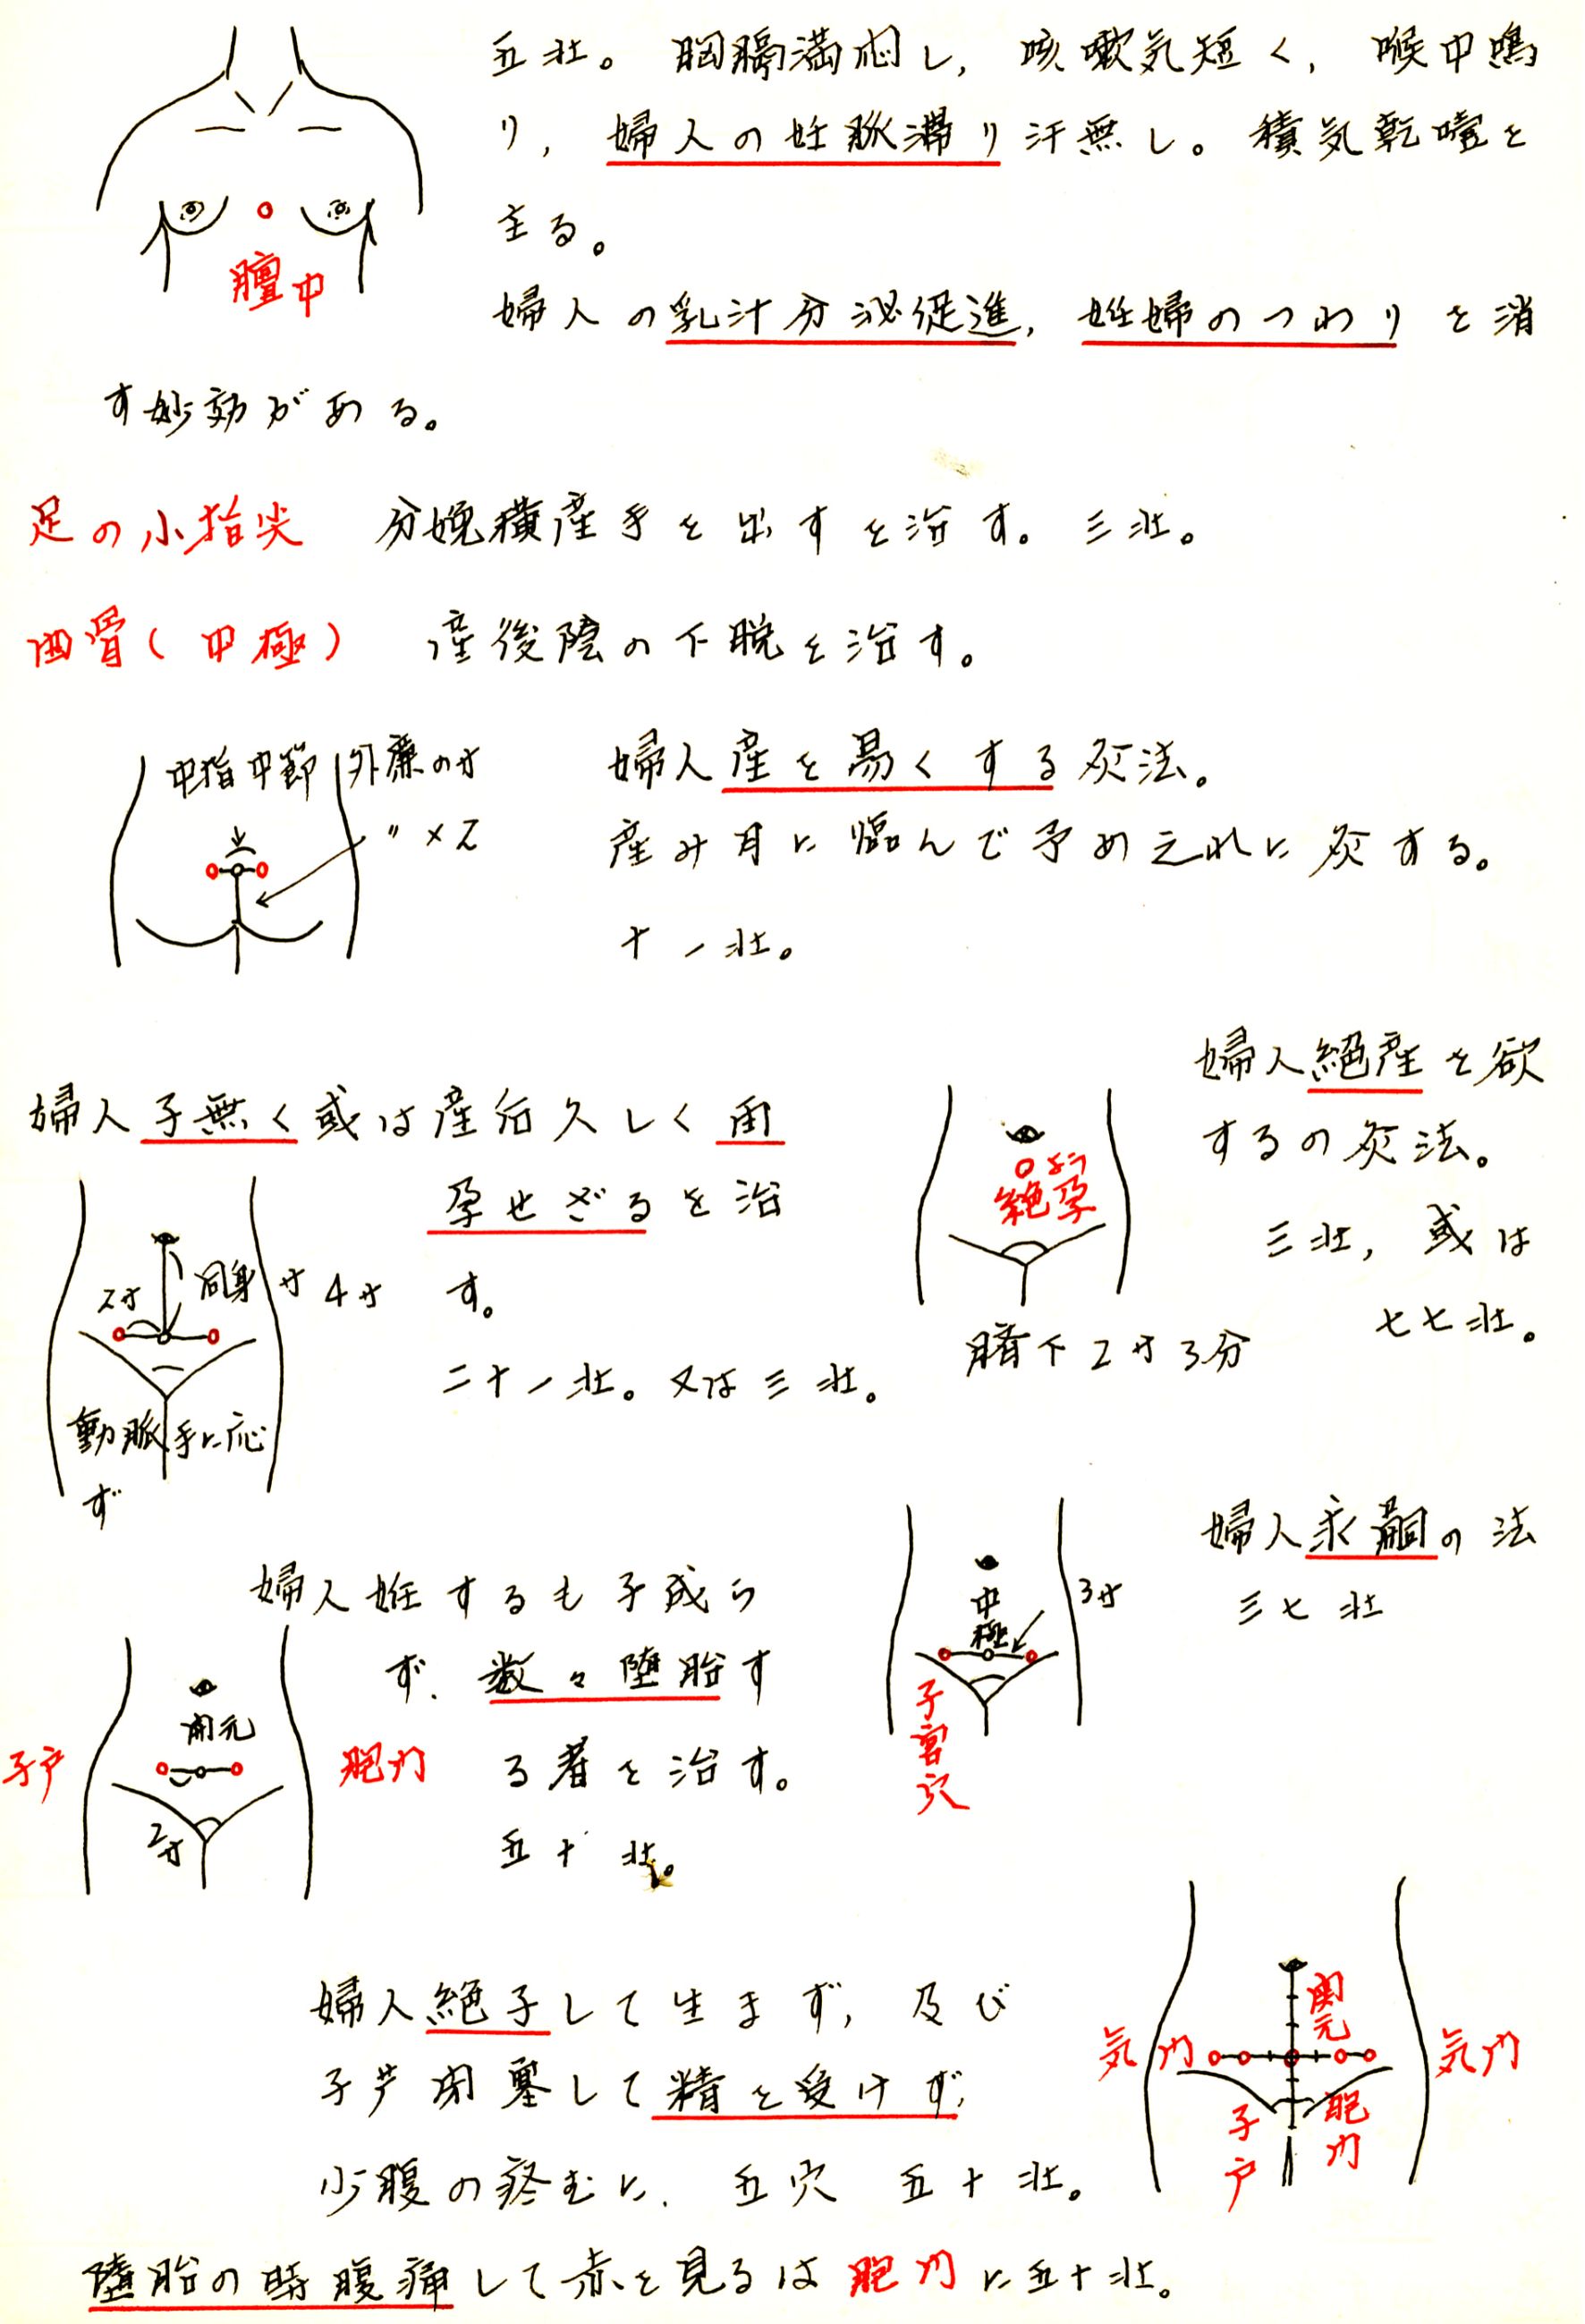 五壮。胸膈満悶し, 咳嗽気短く, 喉中鳴
り, 婦人の妊脈滞り汗無し。積気乾噎を
主る。
膻中
婦人の乳汁分泌促進, 妊婦のつわりを消
す妙効がある。
足の小指尖 分娩横産手を出すを治す。三壮。
曲骨(中極) 産後陰の下脱を治す。
中指中節外廉の寸
〃×2
婦人産を易くする灸法。
産み月に臨んで予め之れに灸する。
十一壮。
婦人絶産を欲
するの灸法。
三壮, 或は
七七壮。
よう
絶孕
臍下2寸3分
婦人子無く或は産后久しく再
孕せざるを治
す。
二十一壮。又は三壮。
2寸 同身寸4寸
動脈手に応
ず
婦人求嗣の法
三七壮
中極
3寸
子宮穴
婦人妊するも子成ら
ず、数々堕胎す
る者を治す。
五十壮。
関元
子戸
胞門
2寸
婦人絶子して生まず, 及び
子戸閉塞して精を受けず,
少腹の疼むに、五穴 五十壮。
関元
気門
気門
子戸
胞門
堕胎の時腹痛して赤を見るは胞門に五十壮。